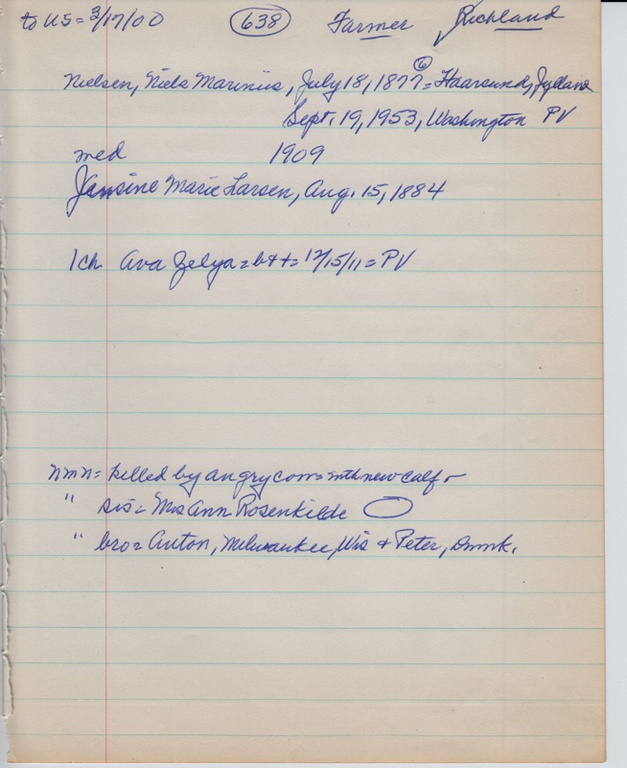 to US = 3/17/00 638 Farmer Richland
Nielsen, Niels Marinus, July 18, 1877 = Haarsund, Jylland
6
Sept. 19, 1953, Washington PV
med 1909
Jensine Marie Larsen, Aug. 15, 1884
1 ch Ava Zelya = b++ = 12/15/11 = PV
nmn = killed by angry cow = with new calf -
" sis = Mrs Ann Rosenkilde
" bro = Anton, Milwaukee, Wis + Peter, Dnmk.